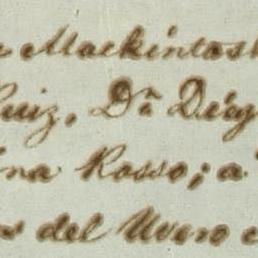 Mackintosh
Ruiz, Dn. Dieg
na Rosso; a
del Uvero